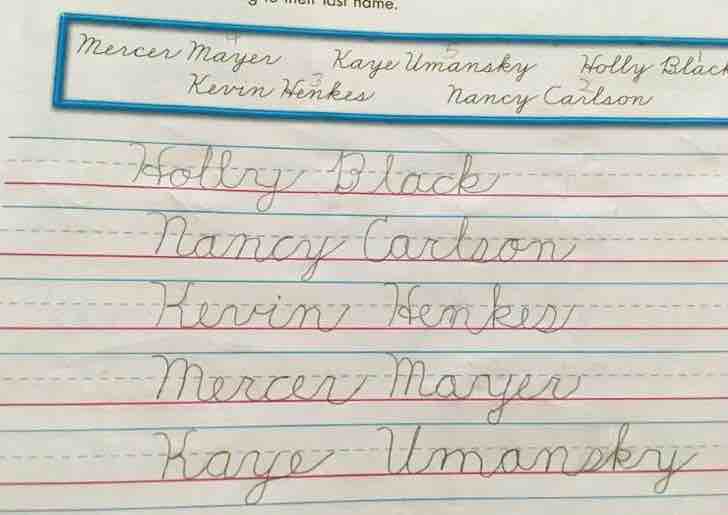 g to their last name.
4 5 1
Mercer Mayer Kaye Umansky Holly Black
3 2
Kevin Henkes Nancy Carlson
Holly Black
Nancy Carlson
Kevin Henkes
Mercer Mayer
Kaye Umansky